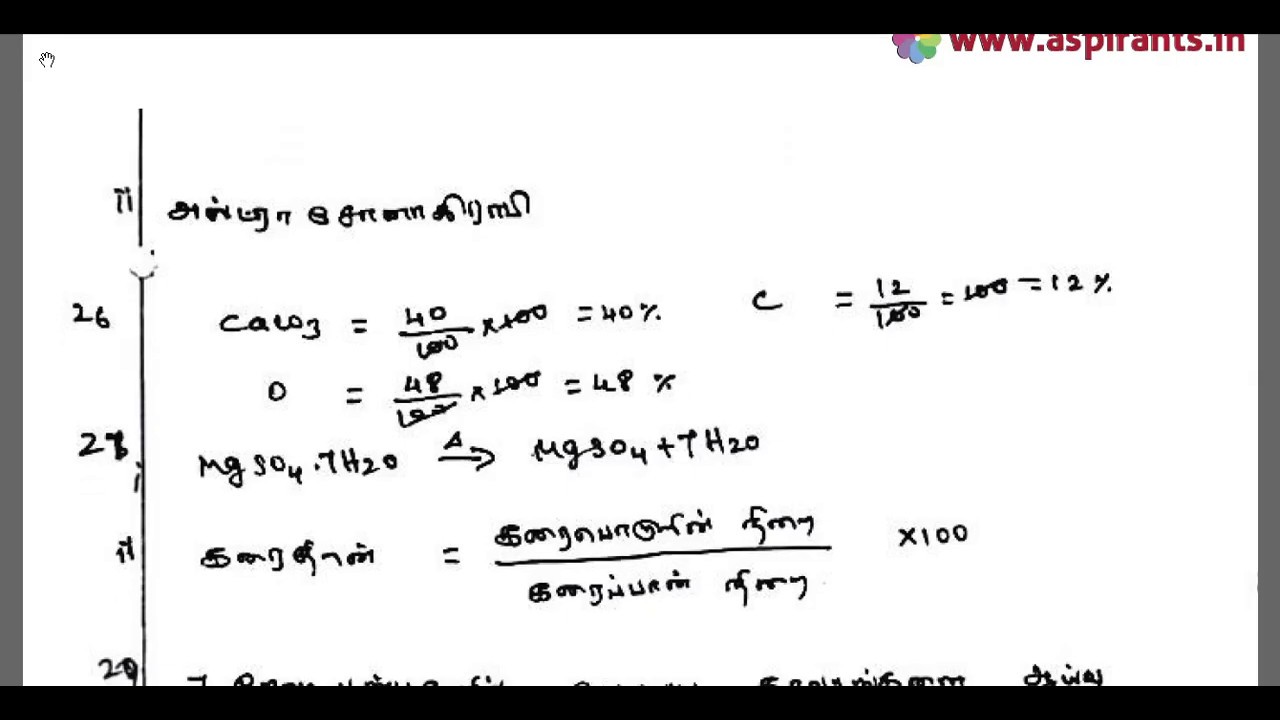 www.aspirants.in
ii அல்ட்ரா சோனாகிராஃபி
26 CaCO3 = 40/100 × 100 = 40% C = 12/100 = 100 = 12%
O = 48/100 × 100 = 48%
MgSO4.7H2O Δ→ MgSO4 + 7H2O
i
ii கரைதிறன் = கரைபொருளின் நிறை / கரைப்பான் நிறை ×100
29